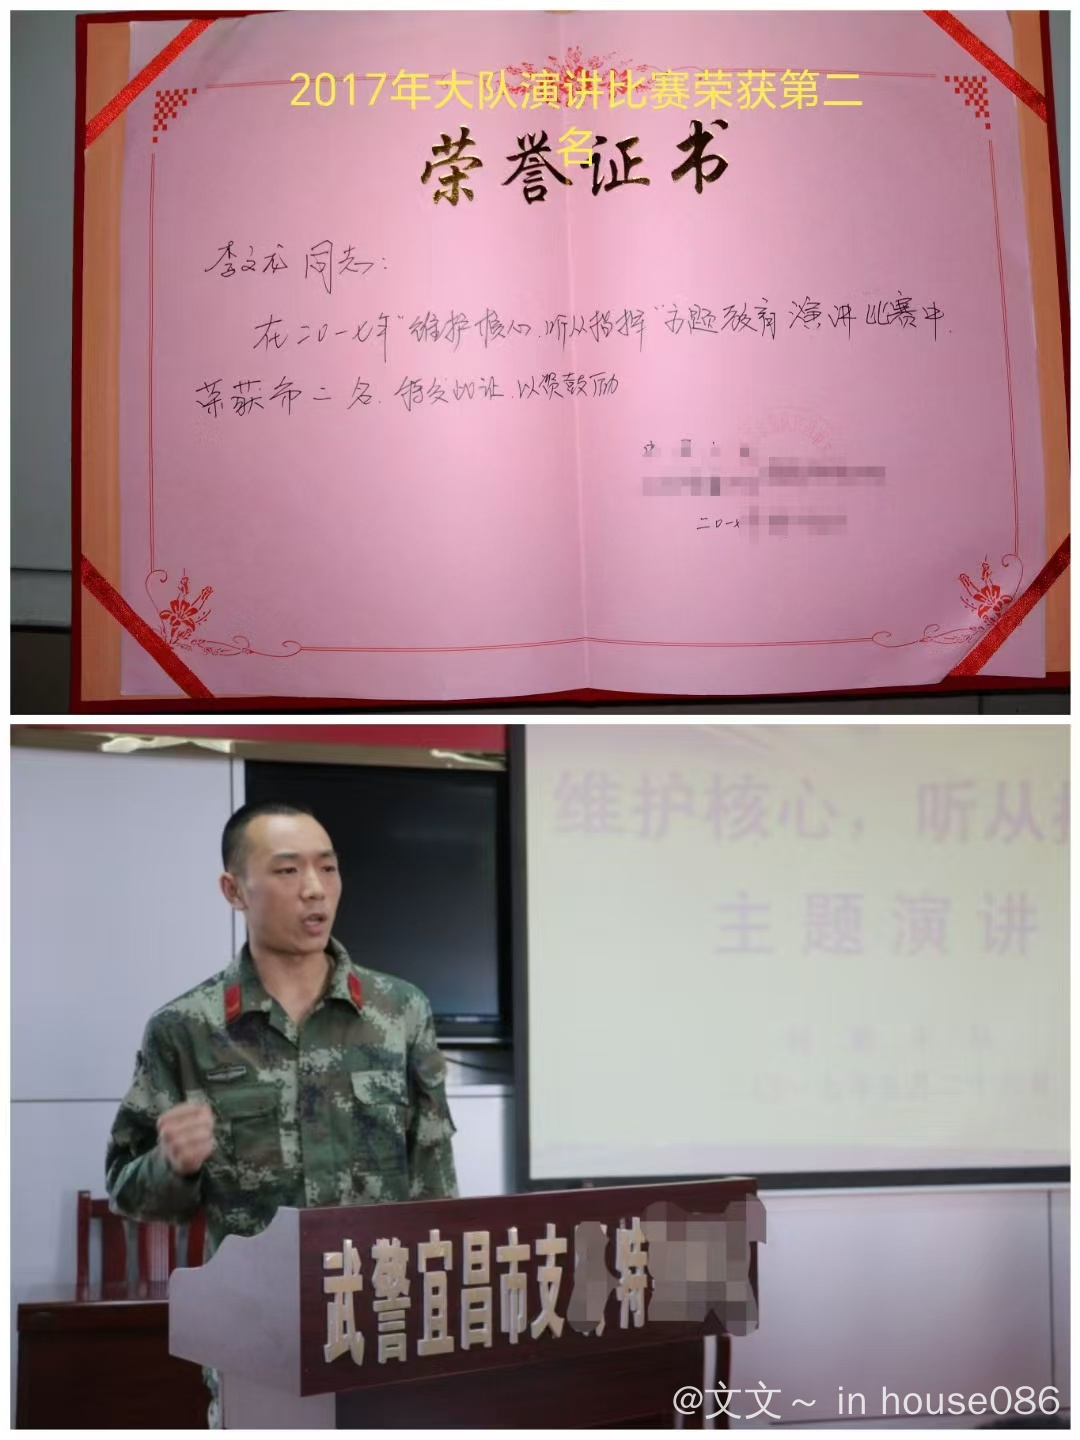 2017年大队演讲比赛荣获第二
名
荣誉证书
李文龙同志:
在二〇一七年"维护核心、听从指挥"主题教育演讲比赛中,
荣获第二名.特发此证,以资鼓励
二〇一七
维护核心，听从
主题演讲
武警宜昌市支 特
@文文~ in house086